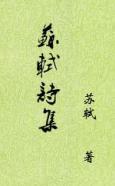 蘇軾詩集
苏轼 著